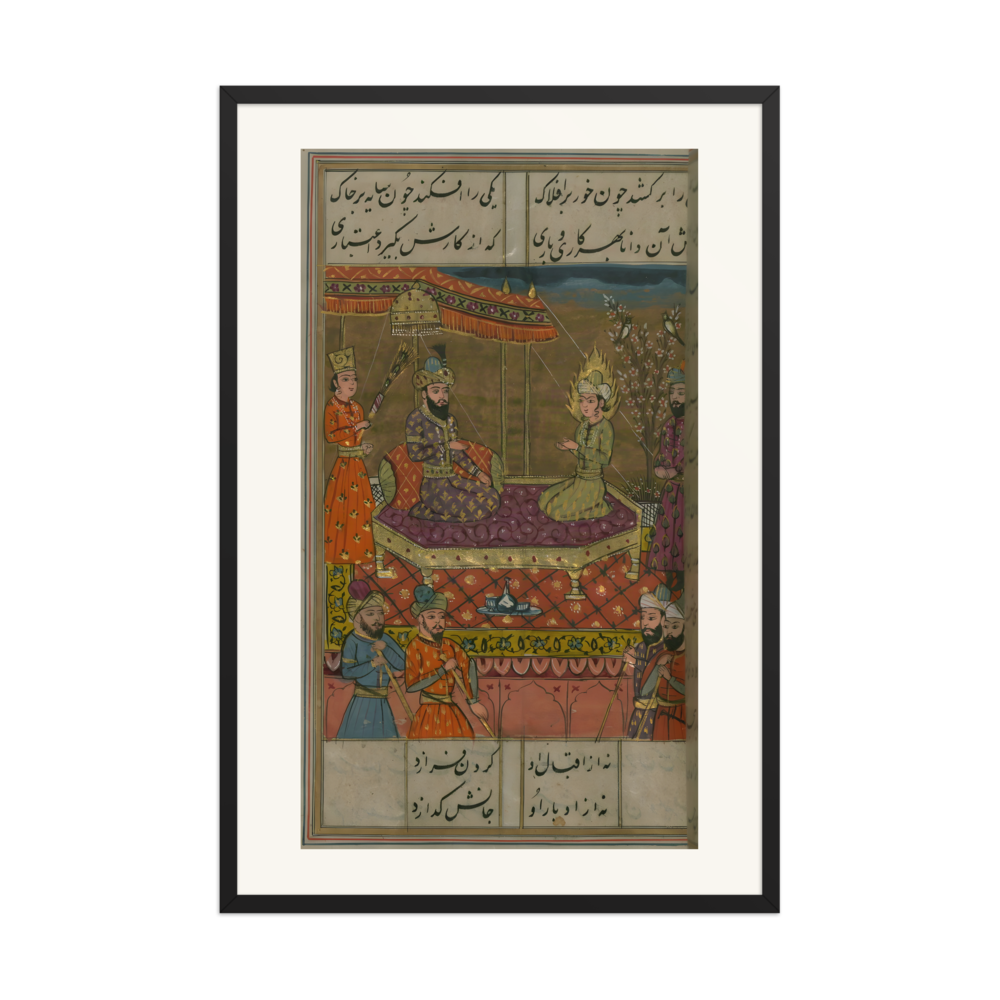 را برکشد چون خور بر افلاک یکی را افکند چون سایه بر خاک
آن دانا بهر کاری و باری که از کارش بگیرد اعتباری
نه از اقبال او گردن فرازد
نه از ادبار او جانش گدازد